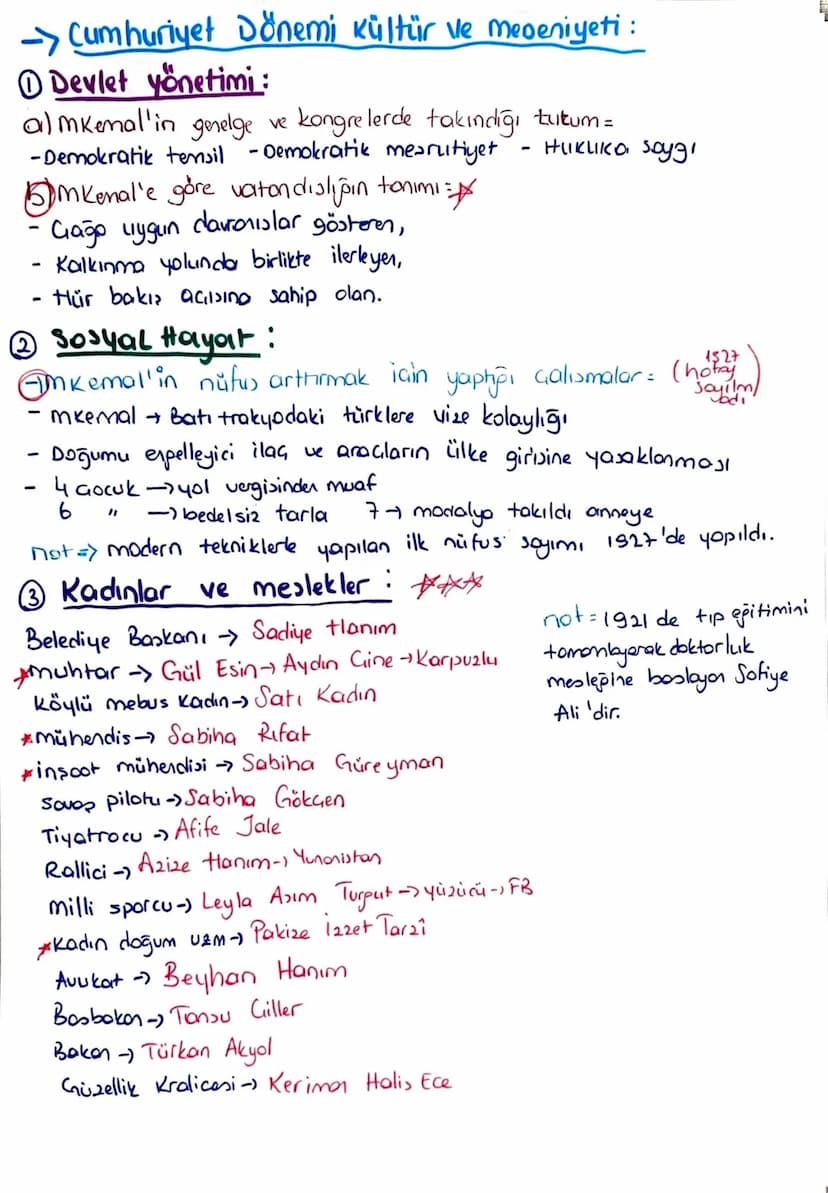 → Cumhuriyet Dönemi Kültür ve Medeniyeti :
① Devlet yönetimi :
a) MKemal'in genelge ve kongrelerde takındığı tutum =
- Demokratik temsil - Demokratik meşrutiyet - Hukuka saygı
b) MKemal'e göre vatandışlığın tanımı =
- Çağa uygun davranışlar gösteren,
- Kalkınma yolunda birlikte ilerleyen,
- Hür bakış açısına sahip olan.
② Sosyal Hayat :
→ MKemal'in nüfus arttırmak için yaptığı çalışmalar = (1927 hatay sayılmadı)
- MKemal → Batı trakyadaki türklere vize kolaylığı
- Doğumu engelleyici ilaç ve araçların ülke girişine yasaklanması
- 4 çocuk → yol vergisinden muaf
6 " → bedelsiz tarla 7 → madalya takıldı anneye
not => modern tekniklerle yapılan ilk nüfus sayımı 1927'de yapıldı.
③ Kadınlar ve meslekler : ☆☆☆
Belediye Başkanı → Sadiye Hanım
muhtar → Gül Esin → Aydın Çine → Karpuzlu
Köylü mebus kadın → Satı Kadın
mühendis → Sabiha Rıfat
inşaat mühendisi → Sabiha Güreyman
Savaş pilotu → Sabiha Gökçen
Tiyatrocu → Afife Jale
Rallici → Azize Hanım → Yunanistan
milli sporcu → Leyla Asım Turgut → yüzücü → FB
Kadın doğum uzm → Pakize İzzet Tarzî
Avukat → Beyhan Hanım
Başbakan → Tansu Çiller
Bakan → Türkan Akyol
Güzellik Kraliçesi → Keriman Halis Ece
not = 1921 de tıp eğitimini
tamamlayarak doktorluk
mesleğine başlayan Safiye
Ali 'dir.